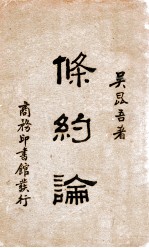 吳昆吾著
條約論
商務印書館發行